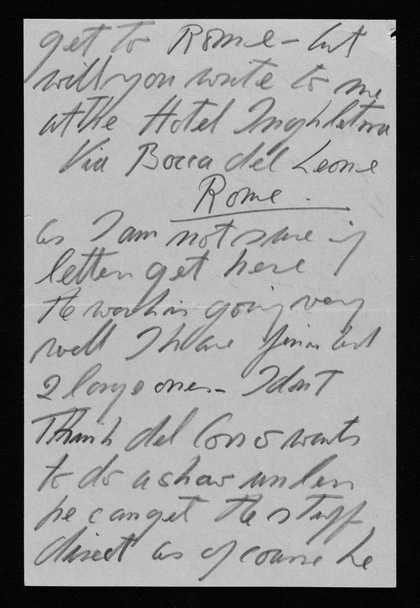 get to Rome – but
will you write to me
at the Hotel Inghleterra
Via Bocca del Leone
Rome.
as I am not sure if
letters get here
The work is going very
well I have finished
2 large ones – I dont
Think del Corso wants
to do a show unless
he can get the stuff
direct as of course he